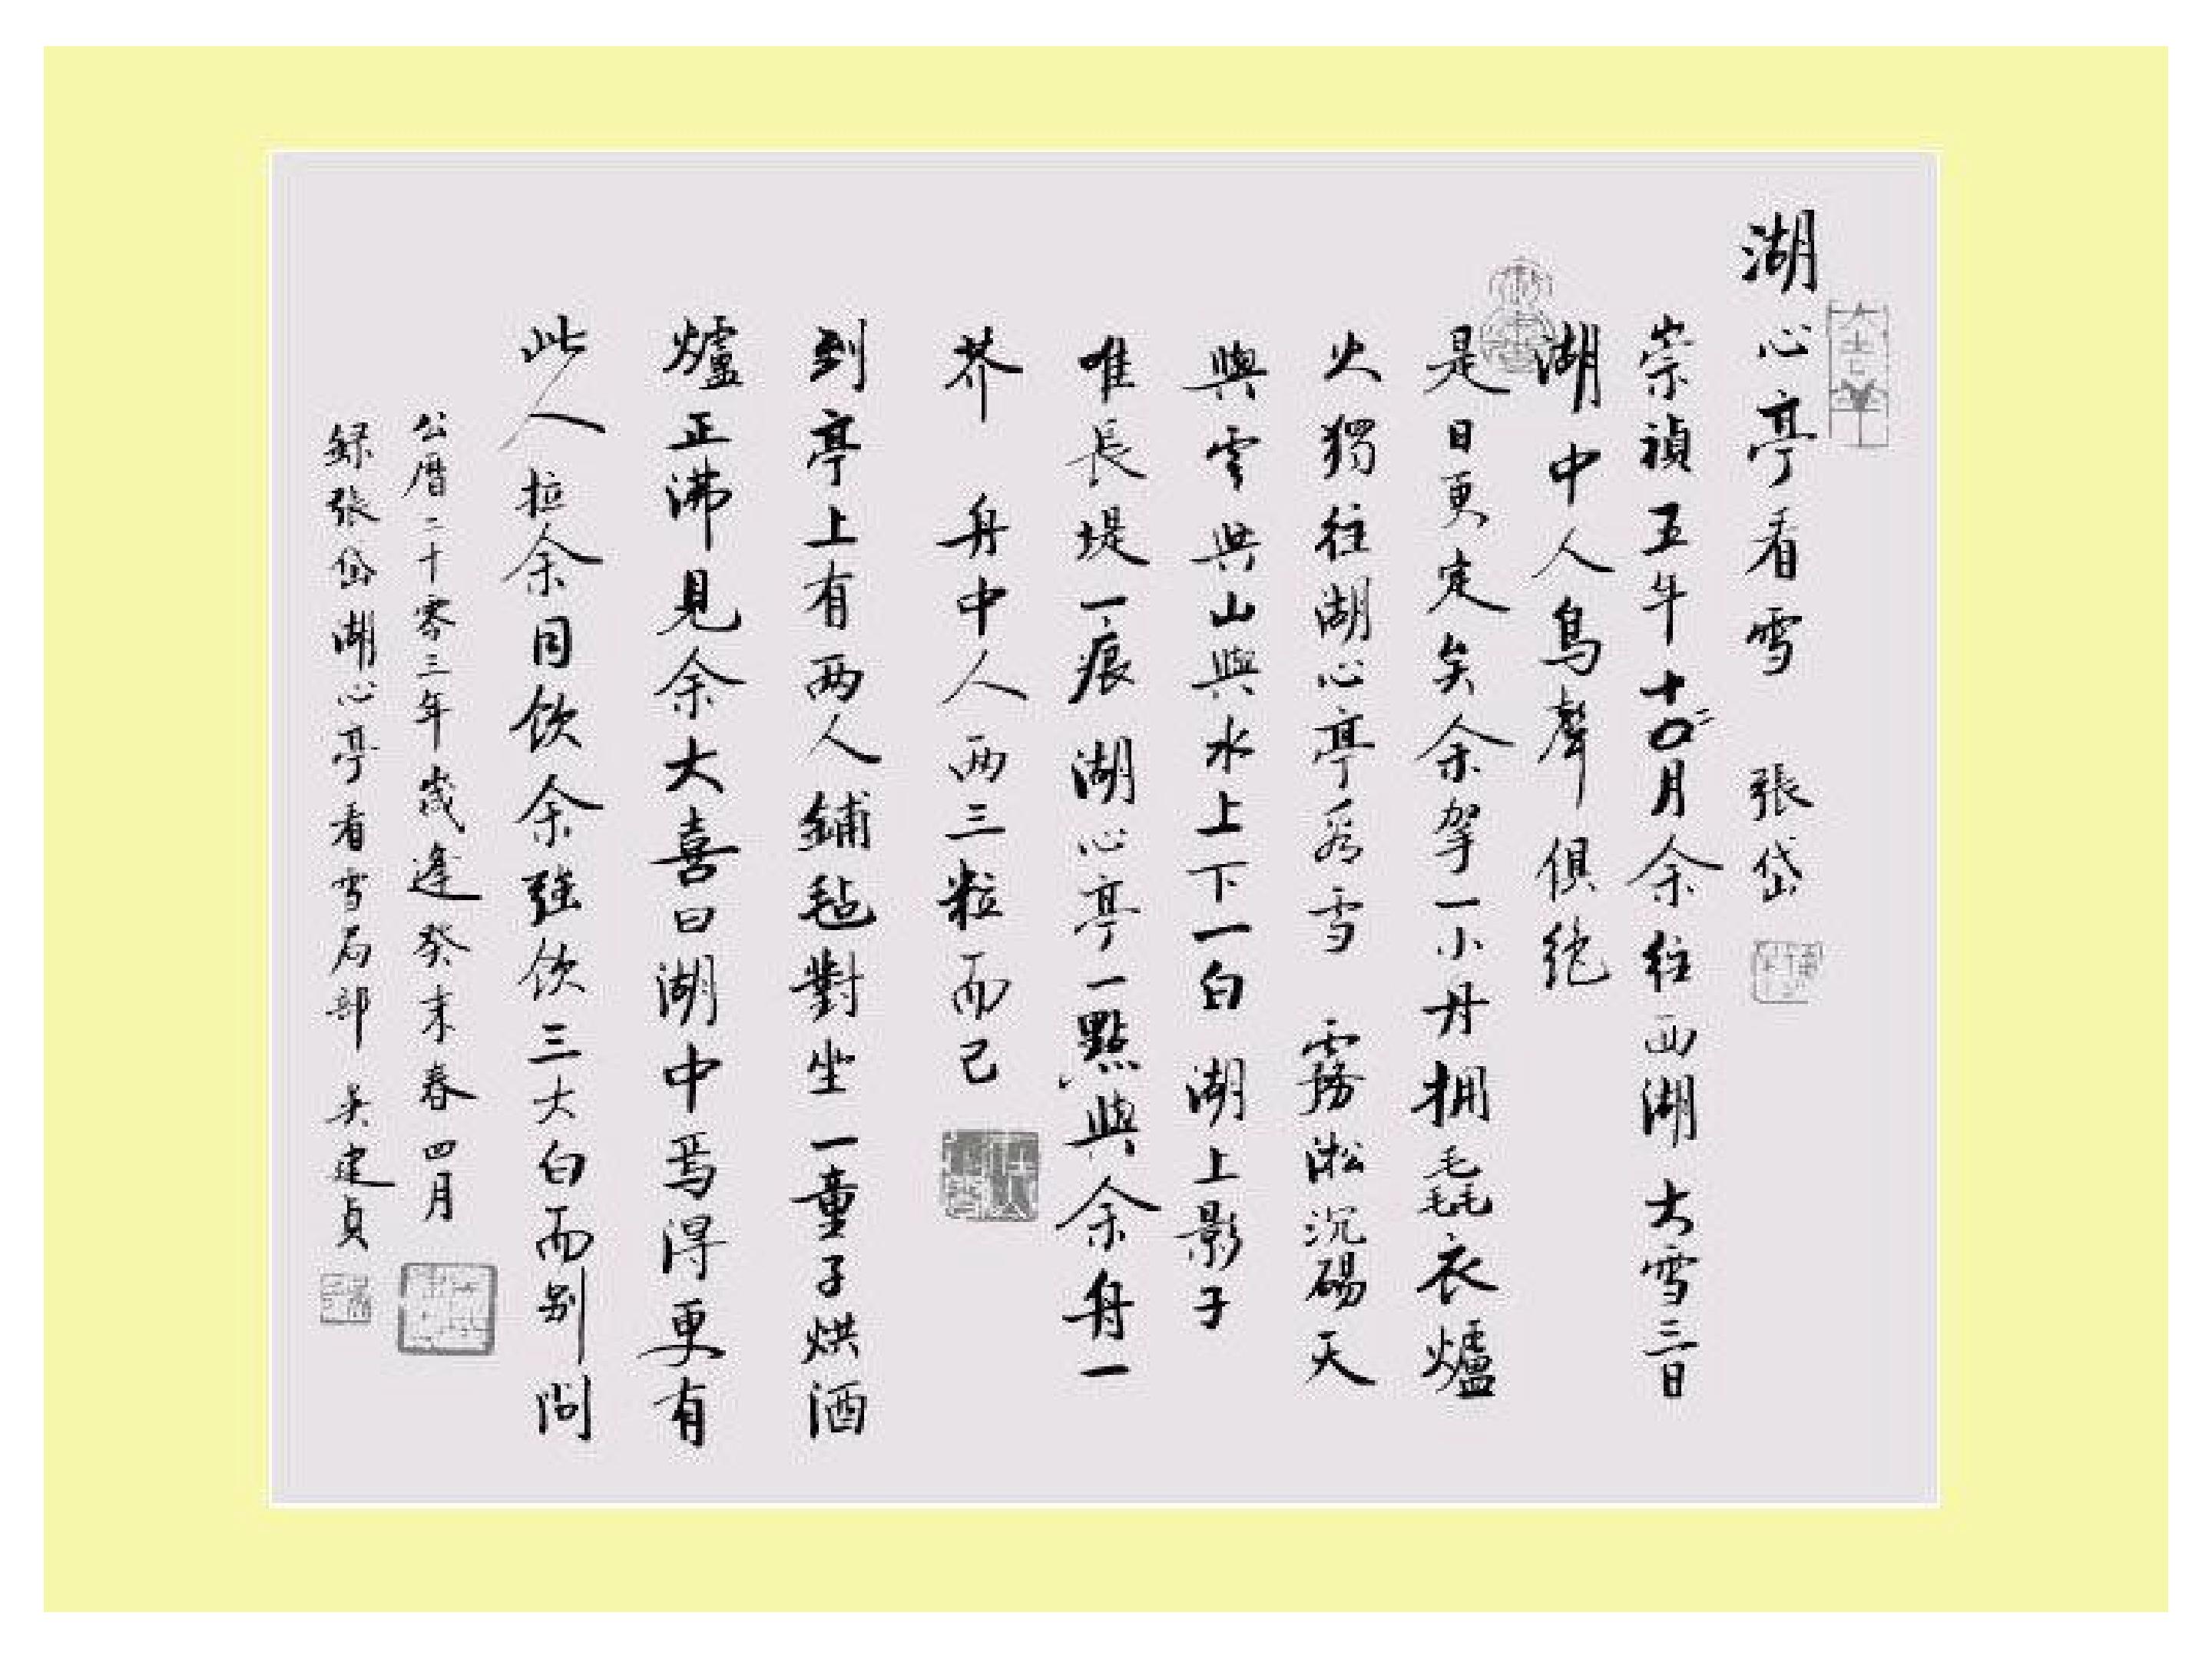 湖心亭看雪 張岱
崇禎五年十二月余往西湖大雪三日
湖中人鳥聲俱絶
是日更定矣余拏一小舟拥毳衣爐
火獨往湖心亭看雪 霧淞沉碭天
與雲與山與水上下一白 湖上影子
唯長堤一痕 湖心亭一點與余舟一
芥 舟中人两三粒而已
到亭上有两人鋪毡對坐一童子烘酒
爐正沸見余大喜曰湖中焉得更有
此人拉余同飲余强飲三大白而别問
公曆二十零三年歲逢癸未春四月
録張岱湖心亭看雪局部 吴建貞